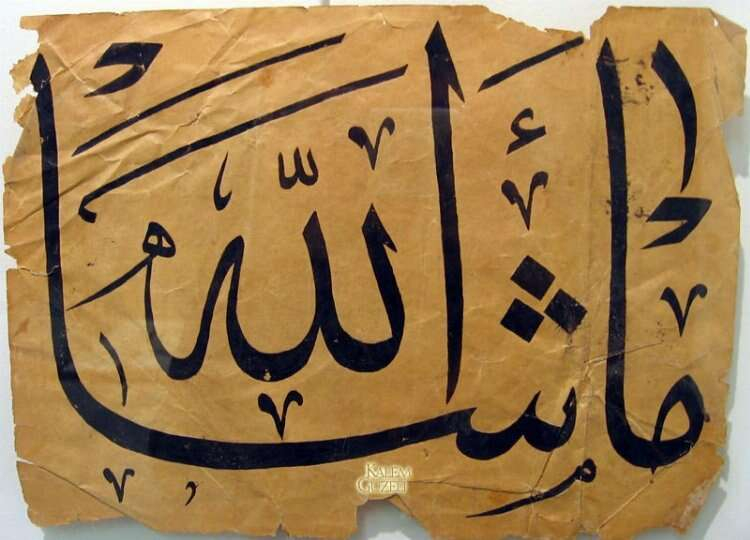 ما شاء الله
KALEM GÜZELİ